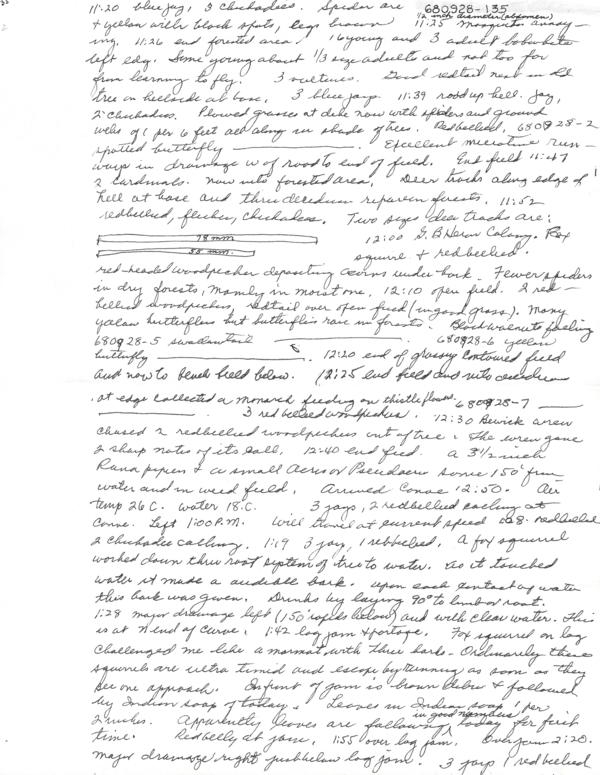 680928-135
11:20 bluejay, 3 chickadees. Spider are 1/2 inch diameter (abdomen)
& yellow with black spots, legs brown 11:25 Mosquito annoy-
ing. 11:26 end forested area. 16 young and 3 adult bobwhite
left edge. Some young about 1/3 size adults and not too far
from learning to fly. 3 vultures. Good redtail nest in
tree on hillside at base, 3 blue jays. 11:39 road up hill. Jay,
2 chickadees. Plowed grasses at dike now with spiders and ground
webs of 1 per 6 feet all along in shade of trees. Redbellied, 680928-2
spotted butterfly. Excellent microtine run-
ways in drainage w of road to end of field. End field 11:47
2 cardinals. Now into forested area. Deer tracks along edge of
hill at base and thru deciduous riparian forests. 11:52
redbellied, flicker, chickadees. Two sizes deer tracks are:
78 mm
55 mm.
12:00 G. B Heron Colony. Fox
squirrel & redbellied.
red-headed woodpecker depositing acorns under bark. Fewer spiders
in dry forests, mainly in moist one. 12:10 open field. 2 red-
bellied woodpeckers, redtail over open field (in good grass). Many
yellow butterflies but butterflies rare in forests. Black walnuts falling
680928-5 swallowtail 680928-6 yellow
butterfly. 12:20 end of grassy contoured field
and now to bench field below. 12:25 end field and into deciduous
. at edge collected a monarch feeding on thistle flower. 680928-7
3 redbellied woodpeckers. 12:30 Bewick wren
chased 2 redbellied woodpeckers out of tree. The wren gave
2 sharp notes of its call. 12:40 end field. a 3 1/2 inch
Rana pipiens & a small Acris or Pseudacris some 150' from
water and in weed field. Arrived Canoe 12:50. Air
temp 26 C. water 18.C. 3 jays, 2 redbellied calling at
Canoe. Left 1:00 P.M. Will travel at current speed redbellied
2 chickadee calling. 1:19 3 jay, 1 redbellied. A fox squirrel
worked down thru root system of tree to water. As it touched
water it made a audible bark. Upon each contact of water
this bark was given. Drinks by laying 90° to limb or root.
1:28 major drainage left (150' rapids below) and with clear water. This
is at N end of curve. 1:42 log jam & portage. Fox squirrel on log
challenged me like a marmot with three barks. Ordinarily these
squirrels are ultra timid and escape by running as soon as they
see one approach. Infront of jam is brown debris & followed
by Indian soap of today. Leaves in Indian soap 1 per
2 inches. Apparently leaves are falling in good numbers today for first
time. Redbelly at jam, 1:55 over log jam. Over jam 2:20.
major drainage right just below log jam. 3 jays 1 redbellied